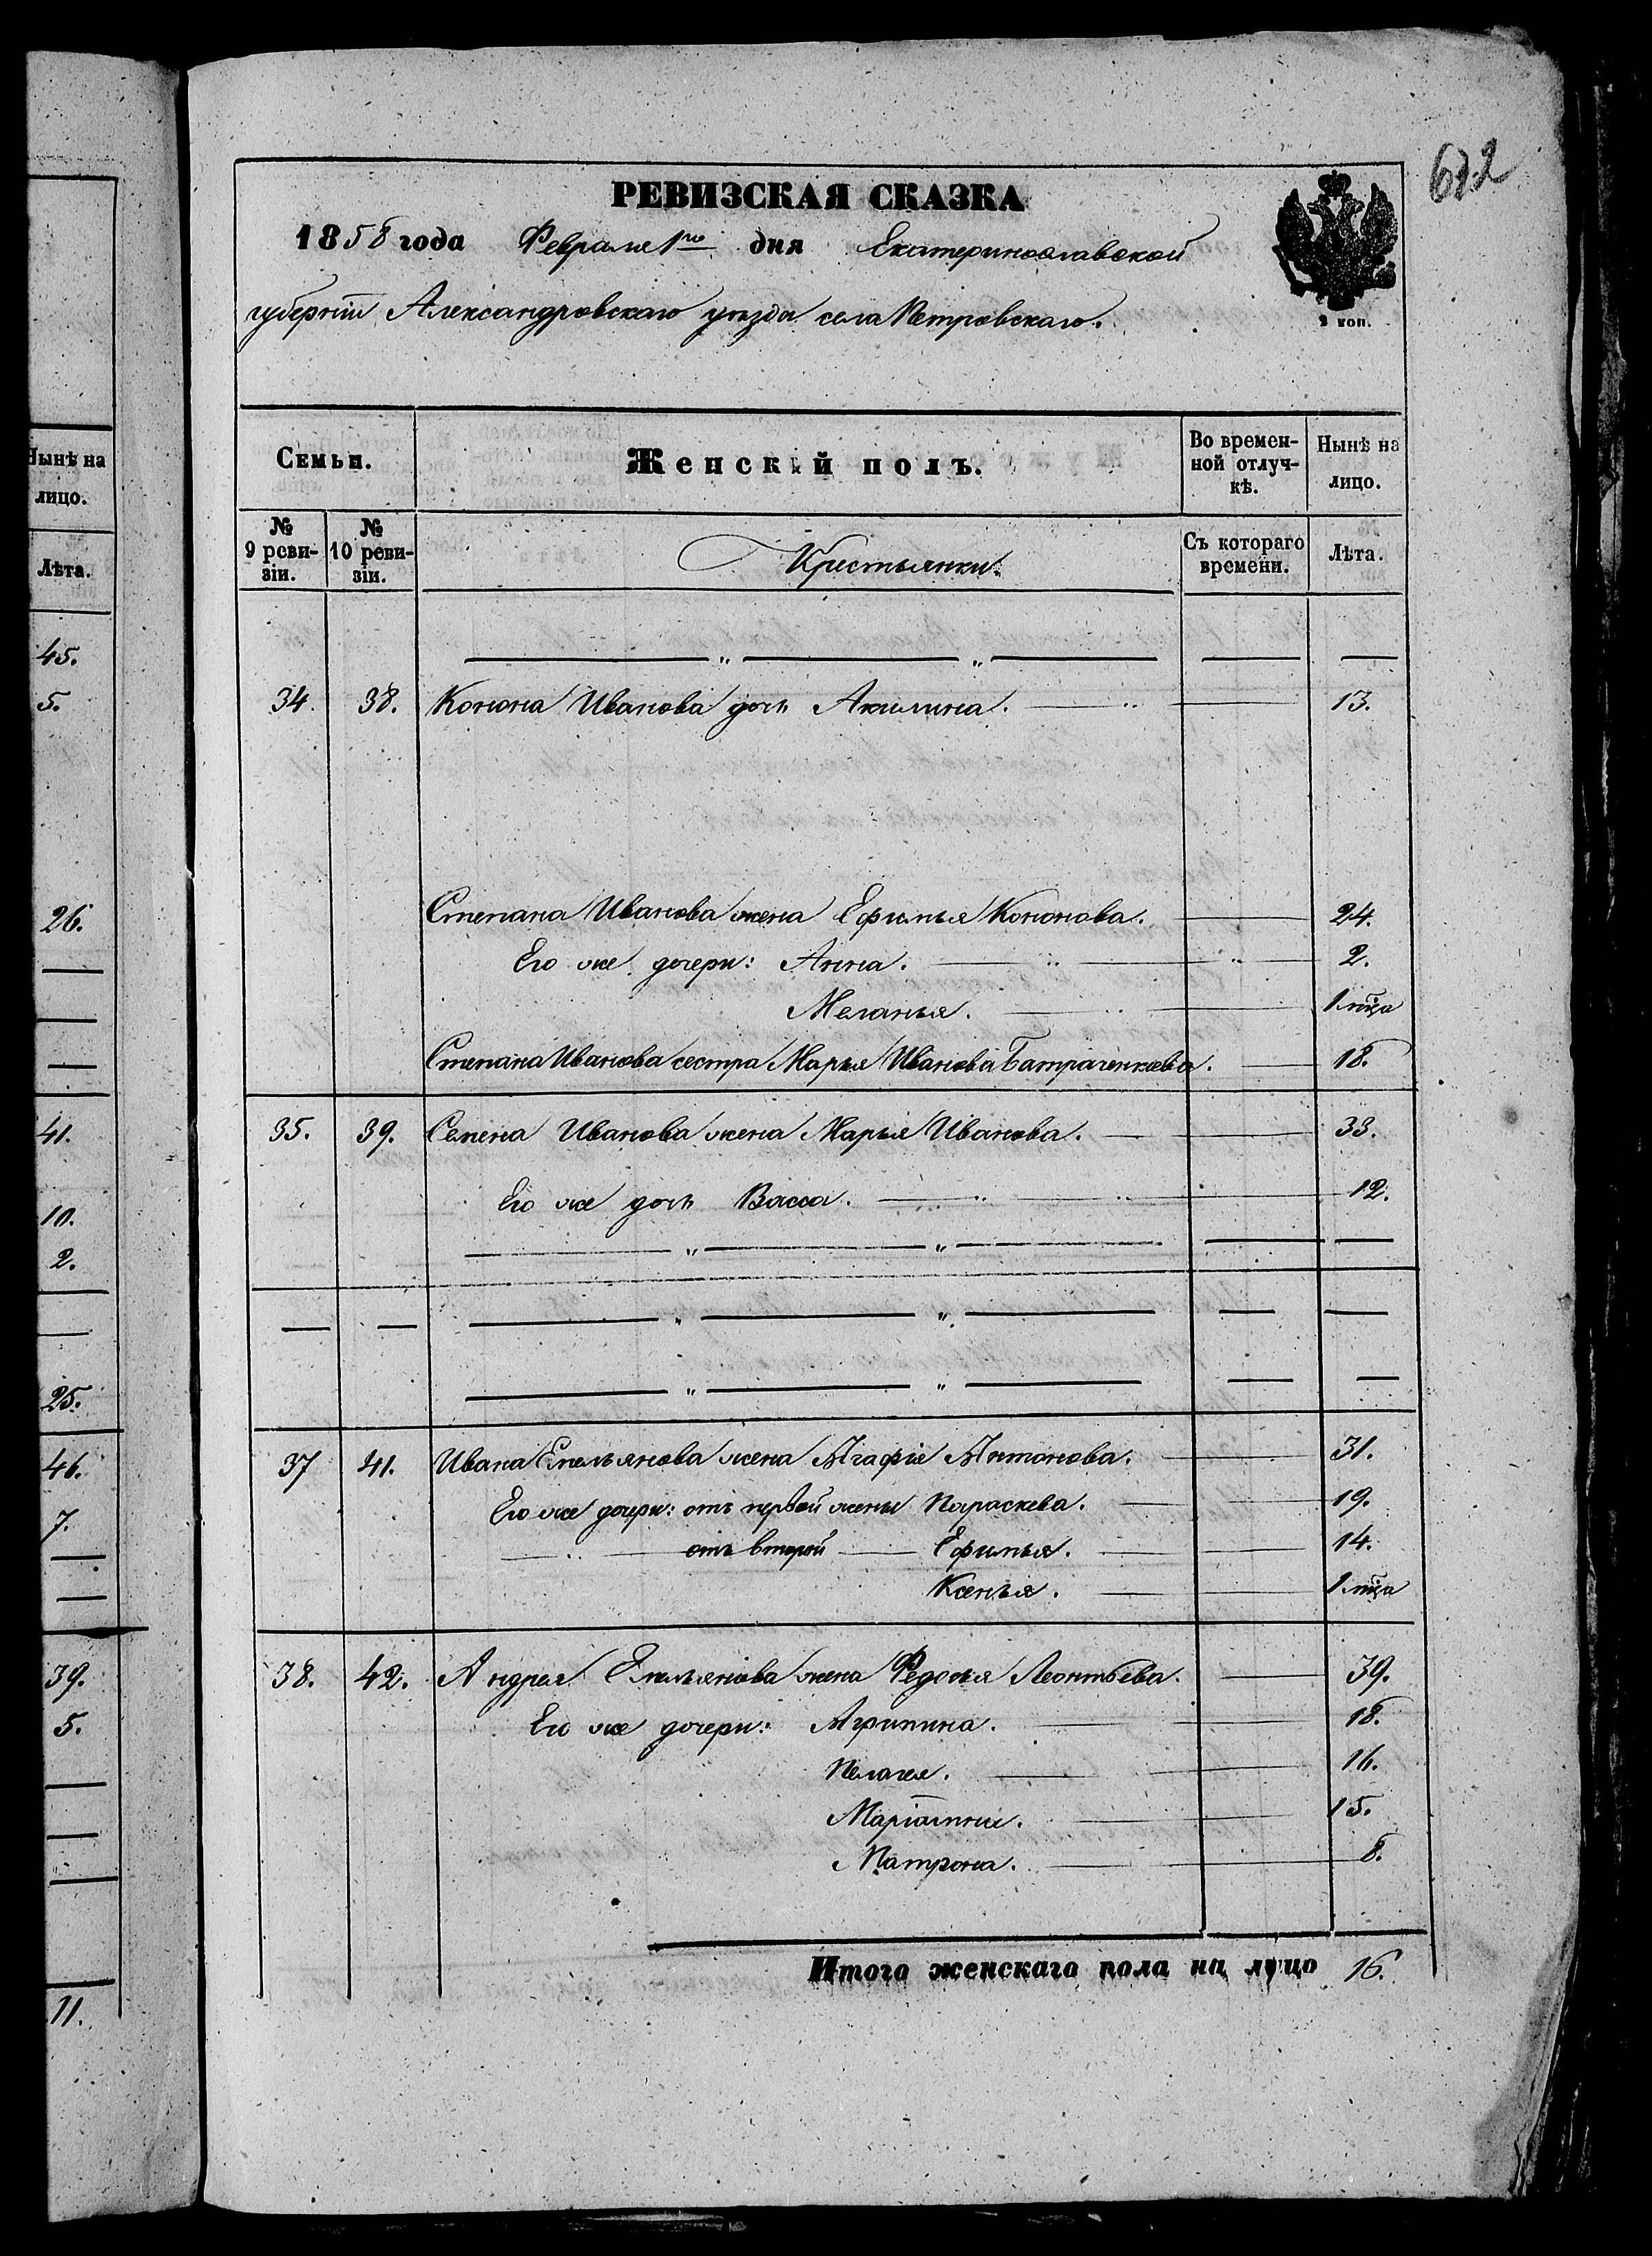 672
РЕВИЗСКАЯ СКАЗКА
1858 года Февраля 1го дня Екатеринославской
губерніи Александровскаго уѣзда села Петровскаго.
2 коп.
Семьи. Женскій полъ. Во времен- Нынѣ на
ной отлуч- лицо.
кѣ.
№ № Крестьянки. Съ котораго Лѣта.
9 реви- 10 реви- времени.
зіи. зіи.
34. 38. Конона Иванова дочь Акилина. 13.
Степана Иванова жена Ефимья Кононова. 24.
Его же дочери: Анна. 2.
Меланья. 1 мца
Степана Иванова сестра Марья Иванова Батраченкова. 18.
35. 39. Семена Иванова жена Марья Иванова. 33.
Его же дочь Васса. 12.
37 41. Ивана Емельянова жена Агафія Антонова. 31.
Его же дочери: отъ первой жены Параскева. 19.
отъ второй Ефимья. 14.
Ксенья. 1 мца
38. 42. Андрея Емельянова жена Федосья Леонтьева. 39.
Его же дочери: Агрипина. 18.
Пелагея. 16.
Маріамна. 15.
Матрона. 8.
Итого женскаго пола на лицо 16.
Нынѣ на
лицо.
Лѣта.
45.
5.
26.
41.
10.
2.
25.
46.
7.
39.
5.
11.